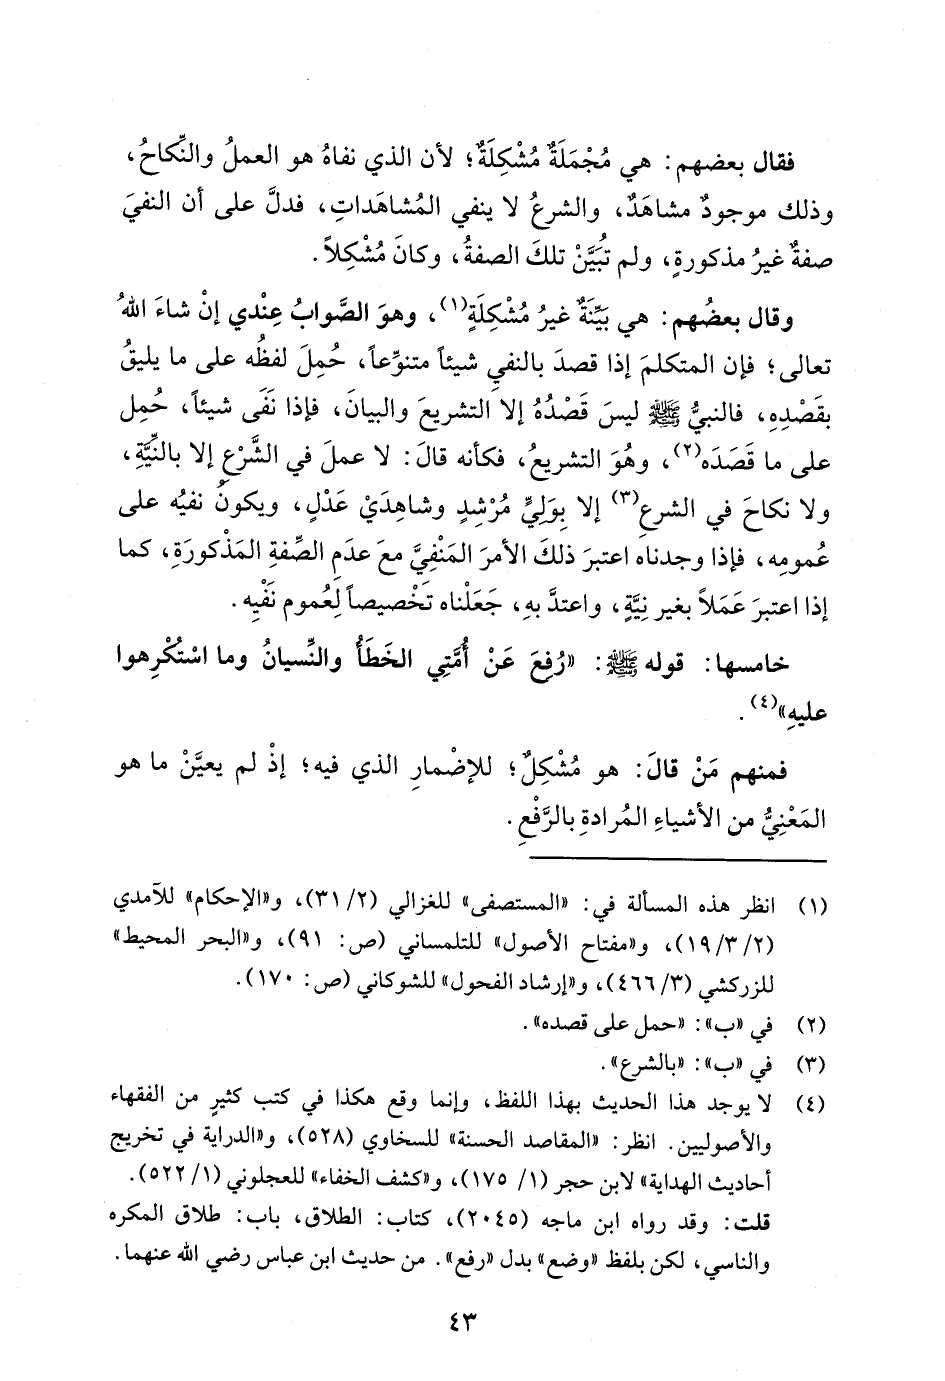 فقال بعضهم: هي مُجْمَلَةٌ مُشْكِلَةٌ؛ لأن الذي نفاهُ هو العملُ والنِّكاحُ،
وذلك موجودٌ مشاهَدٌ، والشرعُ لا ينفي المُشاهَداتِ، فدلَّ على أن النفيَ
صفةٌ غيرُ مذكورةٍ، ولم تُبَيَّنْ تلكَ الصفةُ، وكانَ مُشْكِلاً.
وقال بعضُهم: هي بَيِّنَةٌ غيرُ مُشْكِلَةٍ(١)، وهوَ الصَّوابُ عِنْدي إنْ شاءَ اللهُ
تعالى؛ فإن المتكلمَ إذا قصدَ بالنفيِ شيئاً متنوِّعاً، حُمِلَ لفظُه على ما يليقُ
بقَصْدِهِ، فالنبيُّ ﷺ ليسَ قَصْدُهُ إلا التشريعَ والبيانَ، فإذا نَفَى شيئاً، حُمِل
على ما قَصَدَه(٢)، وهُوَ التشريعُ، فكأنه قالَ: لا عملَ في الشَّرْعِ إلا بالنِّيَّةِ،
ولا نكاحَ في الشرعِ(٣) إلا بِوَلِيٍّ مُرْشِدٍ وشاهِدَيْ عَدْلٍ، ويكونُ نفيُه على
عُمومِه، فإذا وجدناه اعتبرَ ذلكَ الأمرَ المَنْفِيَّ معَ عدَمِ الصِّفةِ المَذْكورَةِ، كما
إذا اعتبرَ عَمَلاً بغيرِ نِيَّةٍ، واعتدَّ بهِ، جَعَلْناه تَخْصيصاً لِعُموم نَفْيِه.
خامسها: قوله ﷺ: «رُفِعَ عَنْ أُمَّتِي الخَطَأُ والنِّسيانُ وما اسْتُكْرِهوا
عليهِ»(٤).
فمنهم مَنْ قالَ: هو مُشْكِلٌ؛ للإضْمارِ الذي فيه؛ إذْ لم يعيَّنْ ما هو
المَعْنِيُّ من الأشياءِ المُرادةِ بالرَّفْعِ.
(١) انظر هذه المسألة في: «المستصفى» للغزالي (٢/ ٣١)، و«الإحكام» للآمدي
(٢/ ٣/ ١٩)، و«مفتاح الأصول» للتلمساني (ص: ٩١)، و«البحر المحيط»
للزركشي (٣/ ٤٦٦)، و«إرشاد الفحول» للشوكاني (ص: ١٧٠).
(٢) في «ب»: «حمل على قصده».
(٣) في «ب»: «بالشرع».
(٤) لا يوجد هذا الحديث بهذا اللفظ، وإنما وقع هكذا في كتب كثيرٍ من الفقهاء
والأصوليين. انظر: «المقاصد الحسنة» للسخاوي (٥٢٨)، و«الدراية في تخريج
أحاديث الهداية» لابن حجر (١/ ١٧٥)، و«كشف الخفاء» للعجلوني (١/ ٥٢٢).
قلت: وقد رواه ابن ماجه (٢٠٤٥)، كتاب: الطلاق، باب: طلاق المكره
والناسي، لكن بلفظ «وضع» بدل «رفع». من حديث ابن عباس رضي الله عنهما.
٤٣